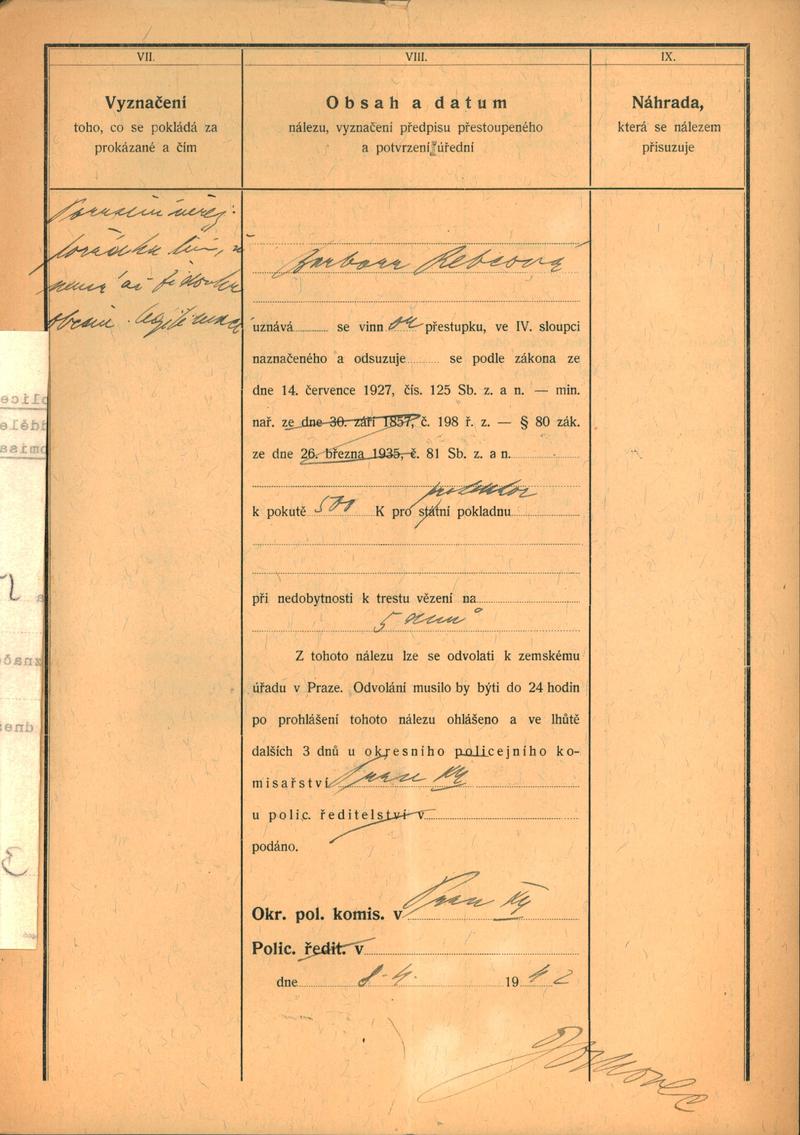 VII.
VIII.
IX.
Vyznačení
toho, co se pokládá za
prokázané a čím
Obsah a datum
nálezu, vyznačení předpisu přestoupeného
a potvrzení úřední
Náhrada,
která se nálezem
přisuzuje
obcí legitimaci
Barbora
uznává se vinn ou přestupku, ve IV. sloupci
naznačeného a odsuzuje se podle zákona ze
dne 14. července 1927, čís. 125 Sb. z. a n. — min.
nař. ze dne 30. září 1857, č. 198 ř. z. — § 80 zák.
ze dne 26. března 1935, č. 81 Sb. z. a n.
k pokutě 500 K pro státní pokladnu
při nedobytnosti k trestu vězení na
5 dnů
Z tohoto nálezu lze se odvolati k zemskému
úřadu v Praze. Odvolání musilo by býti do 24 hodin
po prohlášení tohoto nálezu ohlášeno a ve lhůtě
dalších 3 dnů u okresního policejního ko-
misařství Praze XII
u polic. ředitelství v
podáno.
Okr. pol. komis. v Praze XII
Polic. ředit. v
dne 8. 4. 1942